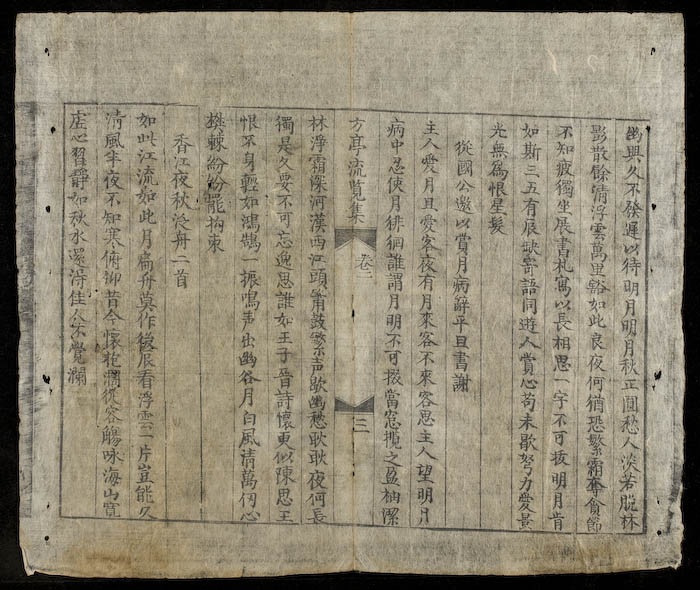 幽興久不發遲以待明月明月秋正圓愁人淡若脫林
影散餘清浮雲萬里豁如此良夜何猶恐繁霜奪貪節
不知疲獨坐展書札寫以長相思一字不可抜明月肯
如斯三五有辰缺寄語同遊人賞心苟未歇努力愛景
光無爲恨星髮
從國公邀以賞月病辭平旦書謝
主人愛月且愛客夜有月來客不來客思主人望明月
病中忍使月徘徊誰謂月明不可掇當窓攬之盈袖潔
方亭流覽集
卷二
三
林淨霜深河漢西江頭角鼓繁声歇幽愁耿耿夜何長
獨是久要不可忘逸思誰如王子晉詩懷更似陳思王
恨不身輕如鴻鵠一振鳴声出幽谷月白風清萬仞心
樕棘紛紛罷拘束
香江夜秋泛舟二首
如此江流如此月扁舟莫作後辰看浮雲一片豈能久
清風半夜不知寒俯仰昔今懷抱濶從容觴咏海山寬
虛心習靜如秋水還淂佳人不覺瀾